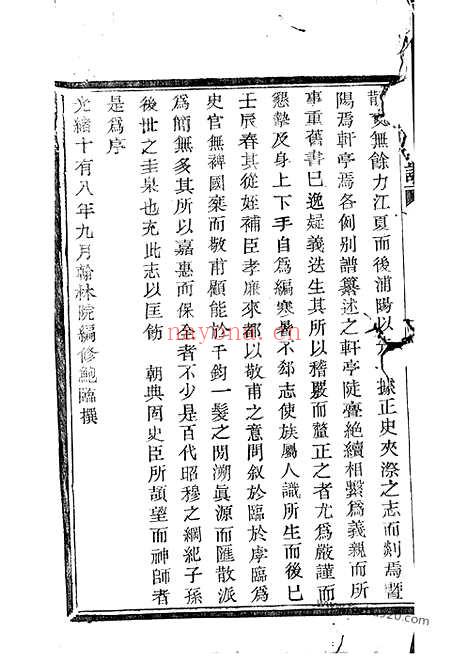 無餘力江夏而後浦陽以 據正史夾漈之志而剡焉暨
陽焉軒亭焉各劍別譜纂述之軒亭陡亹絶續相繫爲義親而所
事重舊書已逸疑義迭生其所以稽嚴而釐正之者尤爲嚴謹而
懇摯及身上下手自爲編寒暑不郄志使族屬人識所生而後已
壬辰春其從姪補臣孝廉來都以敬甫之意問叙於臨於虖臨爲
史官無裨國棻而敬甫顧能於千鈞一髮之閒溯眞源而匯散派
爲簡無多其所以嘉惠而保全者不少是百代昭穆之綱紀子孫
後世之圭臬也充此志以匡飭 朝典固史臣所頡望而神師者
是爲序
光緒十有八年九月翰林院編修鮑臨撰
nayona.cn